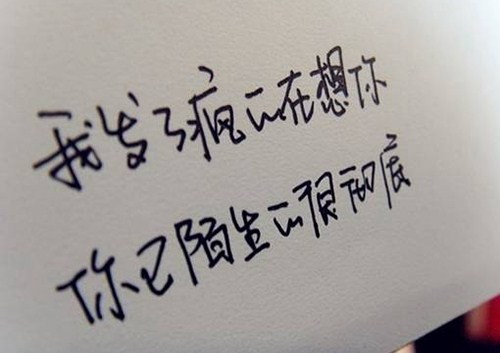 我发了疯一般在想你
你已陌生的很彻底